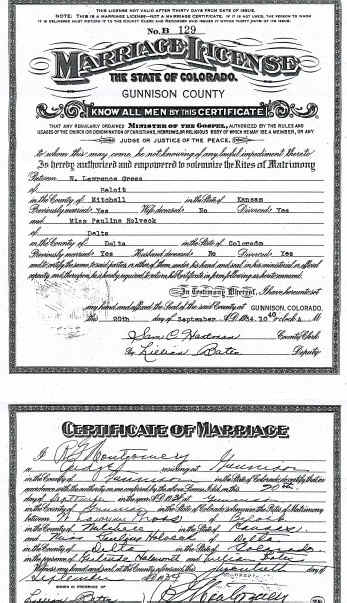 THIS LICENSE NOT VALID AFTER THIRTY DAYS FROM DATE OF ISSUE.
NOTE: THIS IS A MARRIAGE LICENSE—NOT A MARRIAGE CERTIFICATE. IF IT IS NOT USED, THE PERSON TO WHOM
IT IS DELIVERED MUST RETURN IT TO THE COUNTY CLERK AND RECORDER WHO ISSUED IT WITHIN THIRTY DAYS OF ITS ISSUE.
No. B 129
MARRIAGE LICENSE
THE STATE OF COLORADO.
GUNNISON COUNTY
KNOW ALL MEN BY THIS CERTIFICATE
THAT ANY REGULARLY ORDAINED MINISTER OF THE GOSPEL, AUTHORIZED BY THE RULES AND
USAGES OF THE CHURCH OR DENOMINATION OF CHRISTIANS, HEBREWS, OR RELIGIOUS BODY OF WHICH HE MAY BE A MEMBER, OR ANY
JUDGE OR JUSTICE OF THE PEACE,
to whom this may come, he not knowing of any lawful impediment thereto
Is hereby authorized and empowered to solemnize the Rites of Matrimony
Between W. Lawrence Gross
of Beloit
in the County of Mitchell in the State of Kansas
Previously married Yes Wife deceased No Divorced Yes
and Miss Pauline Holveck
of Delta
in the County of Delta in the State of Colorado
Previously married Yes Husband deceased No Divorced Yes
In Testimony Whereof, I have hereunto set
my hand and affixed the Seal of the said County at GUNNISON, COLORADO.
this 20th day of September A.D. 1934. 10 40 o'clock A. M
Sam C. Hartman County Clerk
By Lillian Bates Deputy
CERTIFICATE OF MARRIAGE
I R G Montgomery
a Judge residing at Gunnison
in the County of Gunnison in the State of Colorado, do certify that in
accordance with the authority on me conferred by the above License, I did on this 20th
day of September in the year A.D. 1934 at Gunnison
in the County of Gunnison in the State of Colorado solemnize the Rites of Matrimony
between W Lawrence Gross of Beloit
in the County of Mitchell in the State of Kansas
and Miss Pauline Holveck of Delta
in the County of Delta in the State of Colorado
in the presence of and Lillian Bates
Witness my hand and seal at the County aforesaid, this twentieth day of
September A.D. 1934
Lillian Bates